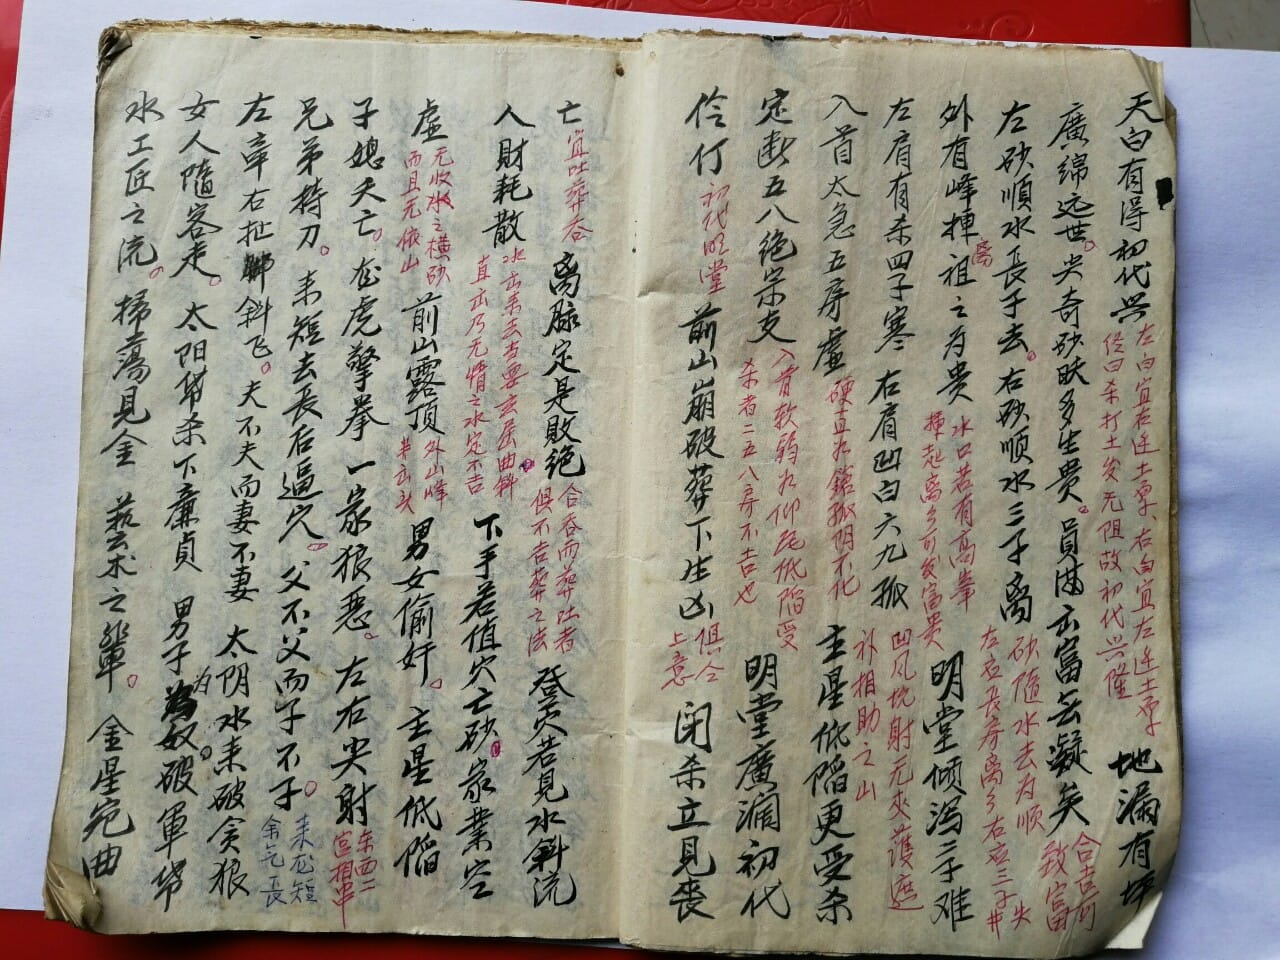 天白有得初代兴
左白宜右迁土享右白宜左迁土享
侵曰杀打土发无阻故初代兴隆
地漏有坪
廣綿远世。尖奇砂昳多生贵。員满云富去凝矣
合吉何
致富
左砂順水長子去。右砂顺水三子离
砂隨水去为順
左应長房离乡右应三子
外有峰揷祖之为贵
离
水口若有高峯
揷起离乡可发富贵
明堂倾泻二子难
左肩有杀四子寒
右肩凹白六九孤
凹风坑射无夾護遮
补相助之山
入首太急五房虚
硬直如鎗孤阴不化
主星低陷更受杀
定断五八绝宗支
入首软弱如仰瓦低陷受
杀者二五八房不吉也
明堂廣濶初代
伶仃
初代明堂
前山崩破葬下生凶
俱仝
上意
闭杀立见丧
亡
宜吐葬吞
离脉定是敗绝
合吞而葬吐者
俱不吉葬之法
登穴若見水斜流
人財耗散
水古来去当要玄屈曲斜
直出乃无情之水定不吉
下手若值穴亡砂
家業空
虚
无收水之横砂
而且无依山
前山露頂
外山峰
井出头
男女偷奸。
主星低陷
子媳夭亡。龙虎擎拳
一家狼恶。
左右尖射
东西二
宫相串
兄弟持刀。
来短去長后逼穴。
父不父而子不子。
来龙短
余気長
左牵右扯斜飞。夫不夫而妻不妻
太阴水来破贪狼
女人隨客走。太阳帶杀下廉貞
男子为奴。破軍帶
水工匠之流。掃蕩見金
藝术之輩。
金星宛曲